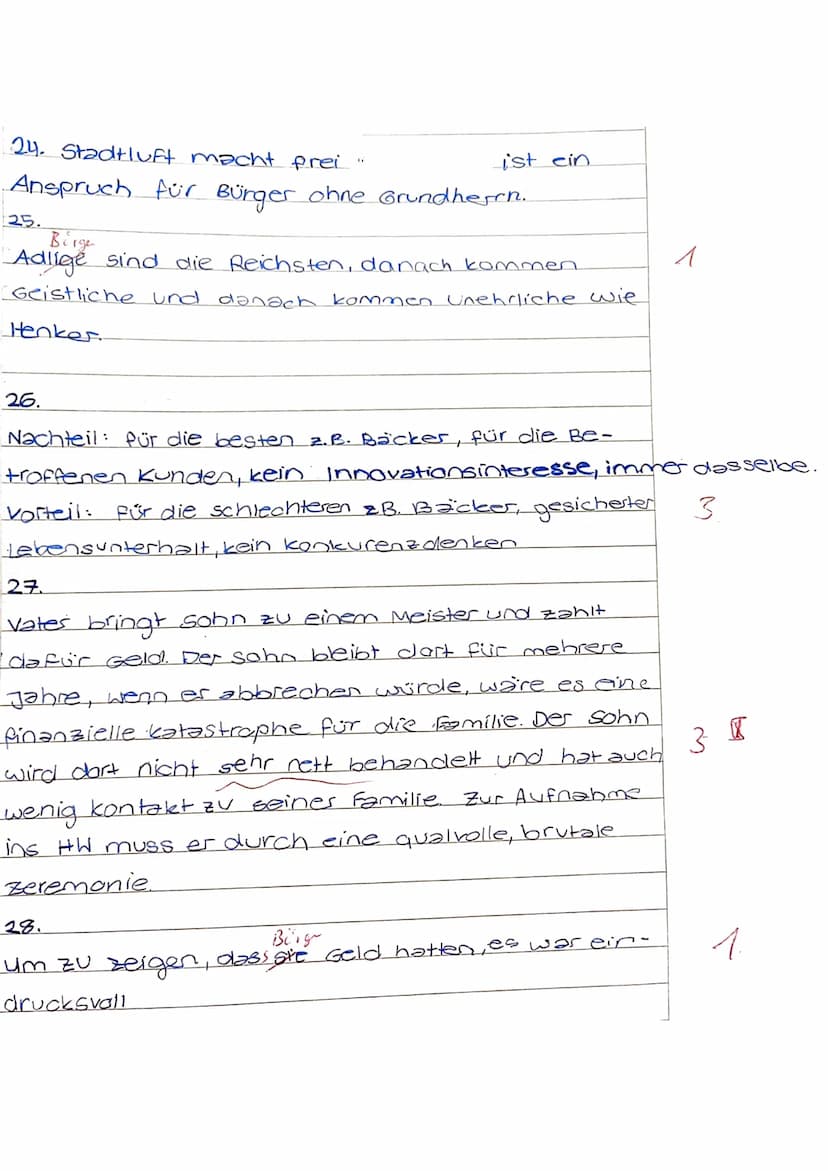 24. Stadtluft macht frei " ist ein
Anspruch für Bürger ohne Grundherrn.
25.
Bürge
Adlige sind die Reichsten, danach kommen 1
Geistliche und danach kommen unehrliche wie
Henker.
26.
Nachteil: für die besten z.B. Bäcker, für die Be-
troffenen Kunden, kein Innovationsinteresse, immer dasselbe.
Vorteil: für die schlechteren z.B. Bäcker, gesicherter 3
Lebensunterhalt, kein Konkurenzdenken
27.
Vater bringt Sohn zu einem Meister und zahlt
dafür Geld. Der Sohn bleibt dort für mehrere
Jahre, wenn er abbrechen würde, wäre es eine
finanzielle Katastrophe für die Familie. Der Sohn
wird dort nicht sehr nett behandelt und hat auch 3
wenig Kontakt zu seiner Familie. Zur Aufnahme
ins HW muss er durch eine qualvolle, brutale
Zeremonie.
28.
Bürg
um zu zeigen, dass sie Geld hatten, es war ein- 1.
drucksvoll